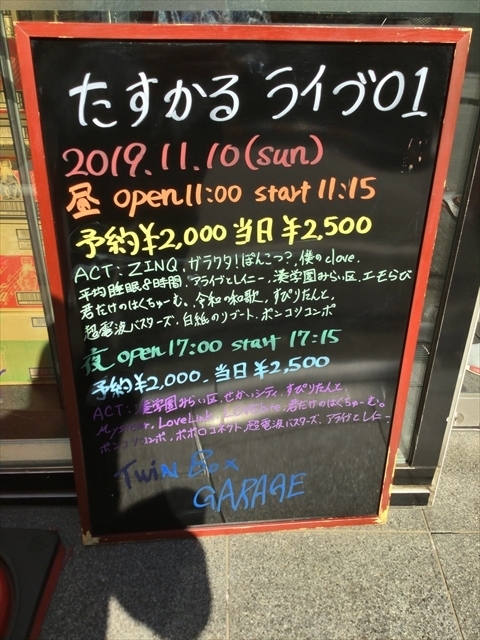 たすかるライブ01
2019.11.10(sun)
昼 open11:00 start 11:15
予約¥2,000 当日¥2,500
ACT: ZINQ. ガラクタ!ぽんこつ?. 僕のclove.
平均睡眠8時間. アライヴとレイニー. 湊学園みらい区. エモらび
君だけのはくちゅーむ。令和の和歌. すぴりたんと。
超電波バスターズ. 白紙のリゾート. ポンコツコンポ
夜 open17:00 start 17:15
予約¥2,000. 当日¥2,500
ACT: 湊学園みらい区. せかいシティ. すぴりたんと。
LoveLink. 君だけのはくちゅーむ。
ポンコツコンポ. ポポロコネクト. 超電波バスターズ.
Twin Box
GARAGE